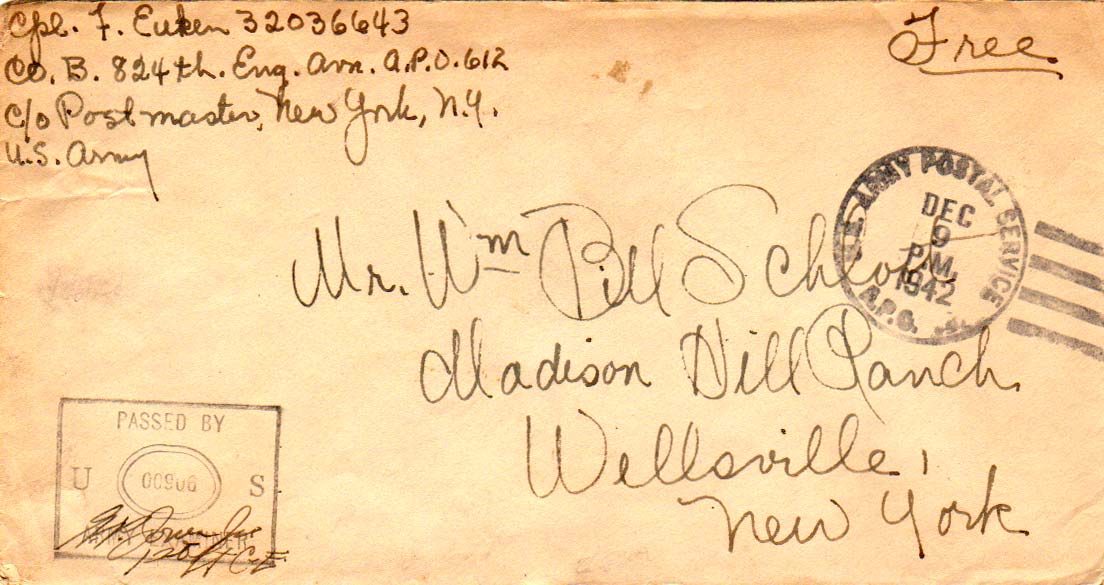 Cpl. F. Euken 32036643
Co. B. 824th. Eng. Avn. A.P.O. 612
c/o Postmaster, New York, N.Y.
U.S. Army
Free.
U.S. ARMY POSTAL SERVICE
DEC
9
P.M.
1942
A.P.O.
Mr. Wm Bill
Madison Hill Ranch.
Wellsville,
New York
PASSED BY
U 00906 S